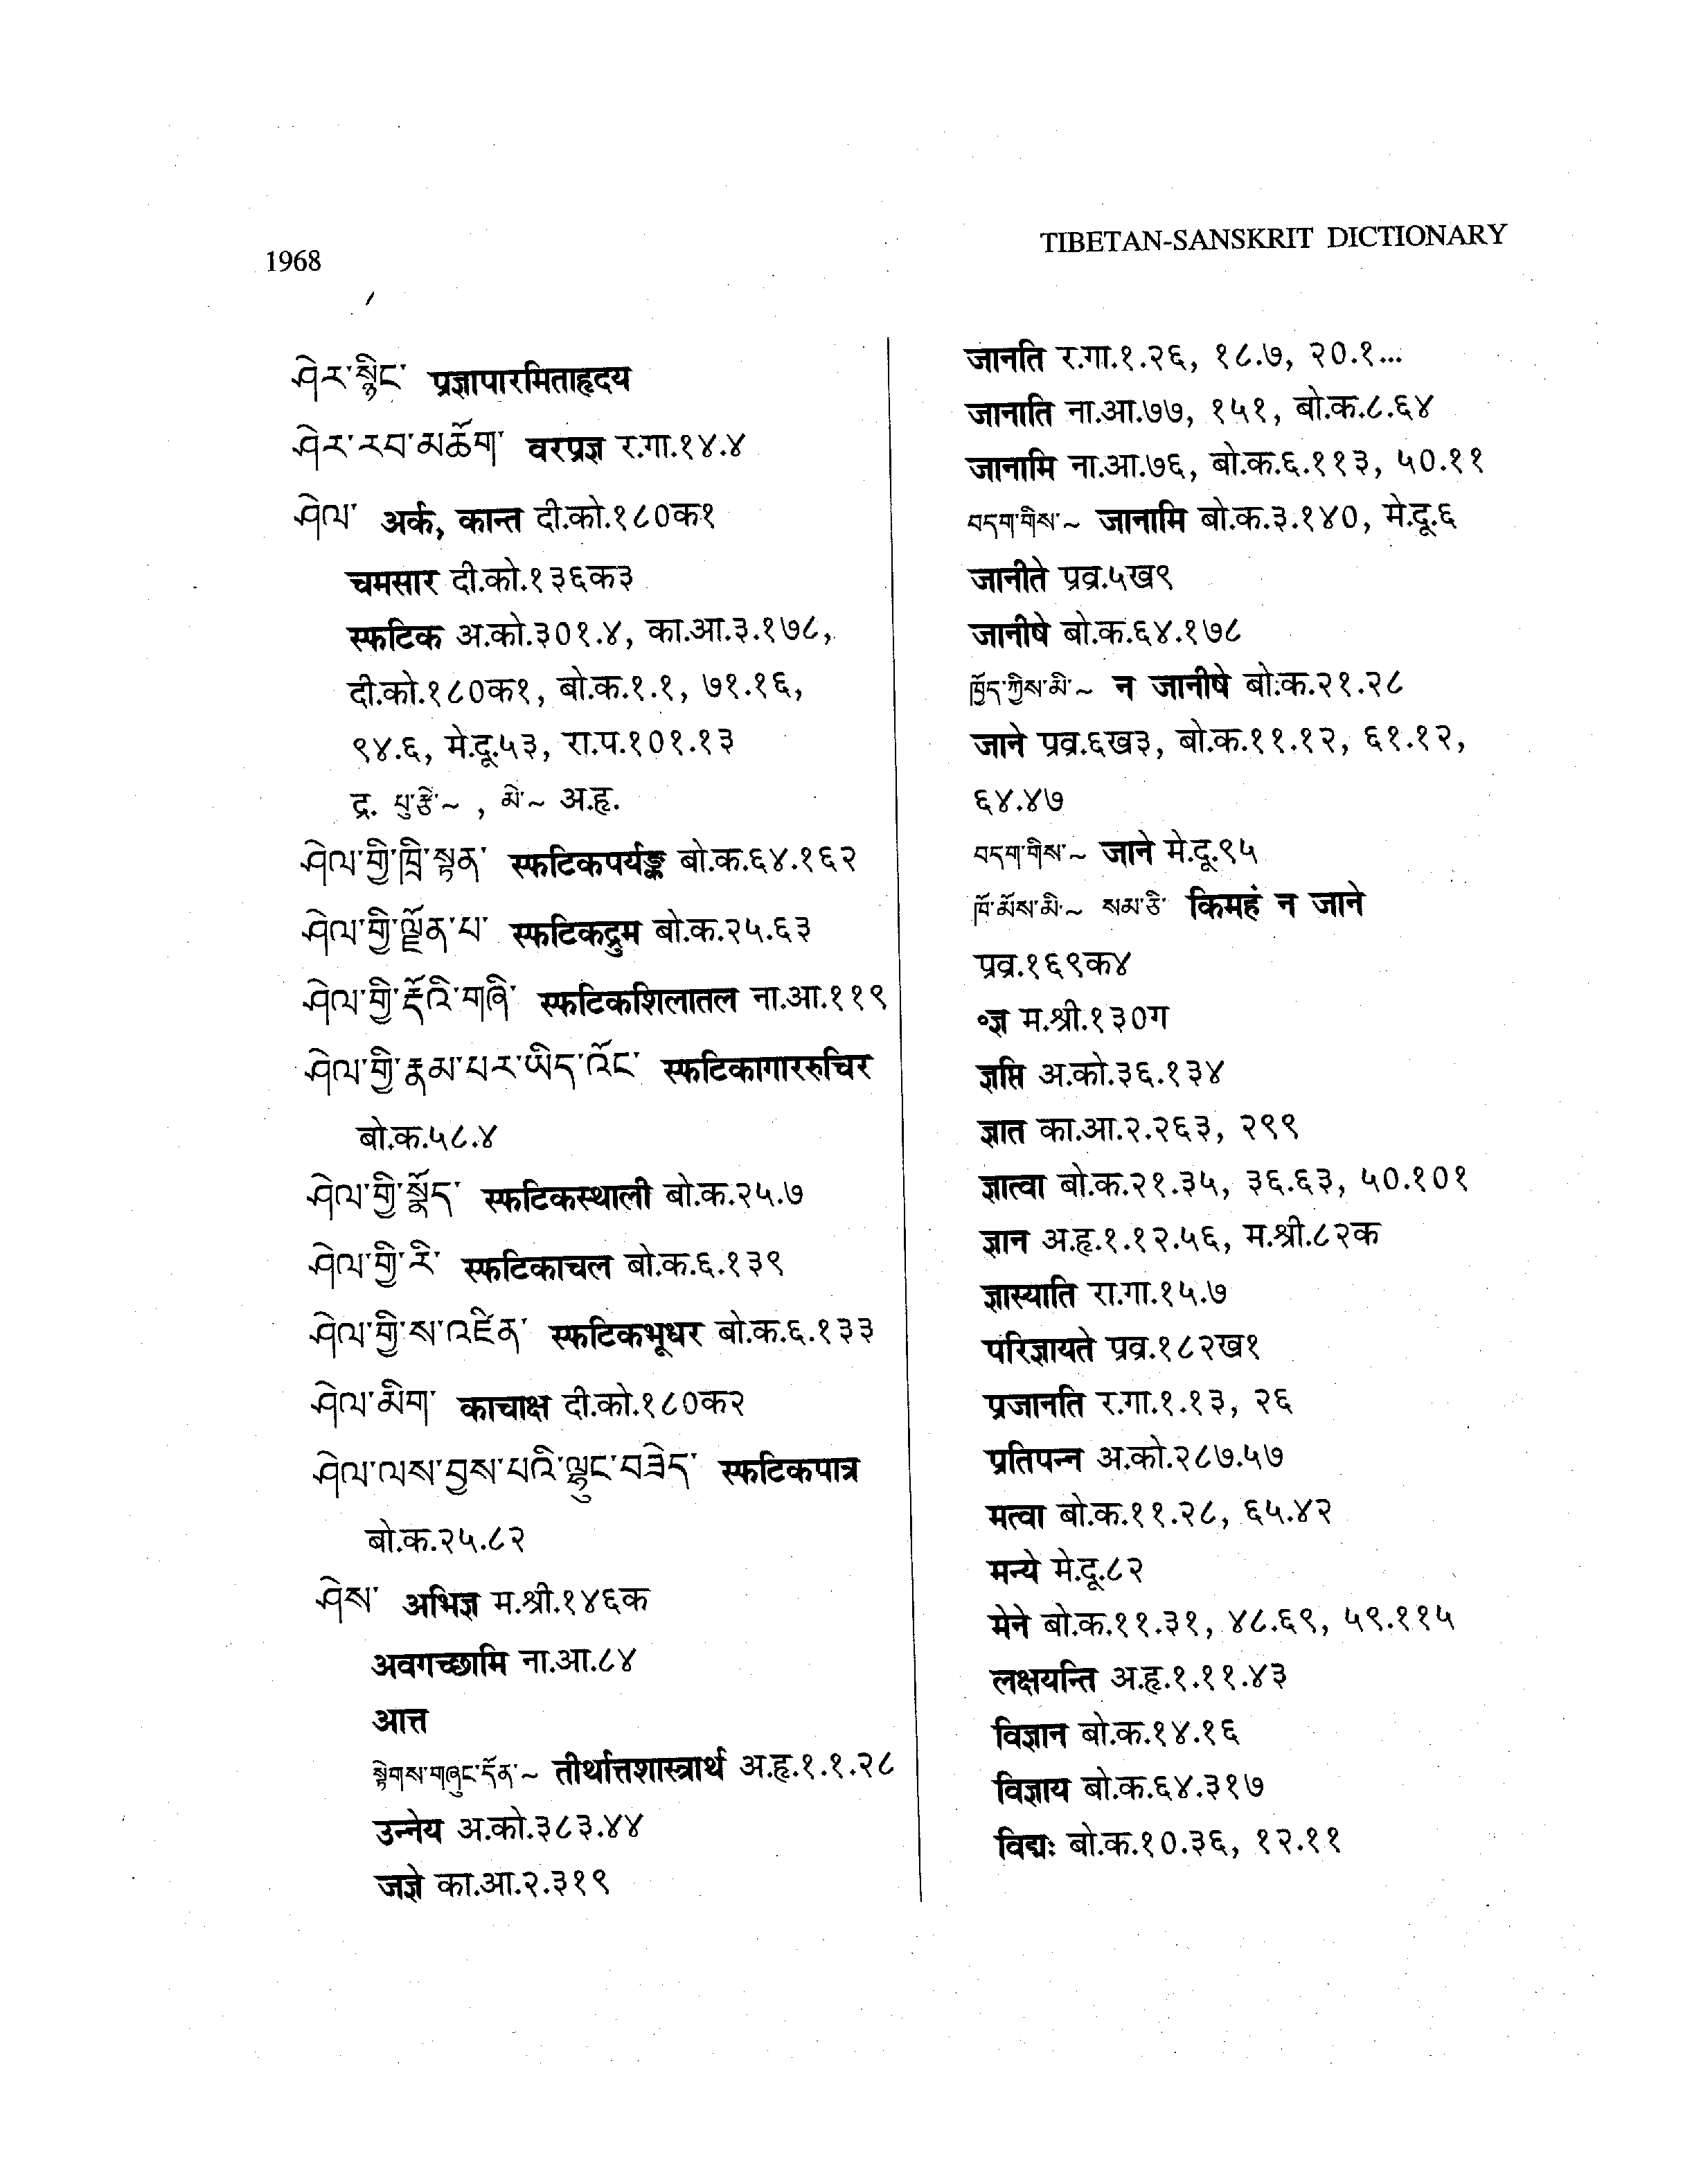 1968
TIBETAN-SANSKRIT DICTIONARY
ཤེར་སྙིང་ प्रज्ञापारमिताहृदय
ཤེར་རབ་མཆོག་ वरप्रज्ञ र.गा.१४.४
ཤེལ་ अर्क, कान्त दी.को.१८०क१
चमसार दी.को.१३६क३
स्फटिक अ.को.३०१.४, का.आ.३.१७८,
दी.को.१८०क१, बो.क.१.१, ७१.१६,
९४.६, मे.दू.५३, रा.प.१०१.१३
द्र. པུ་ཙེ་~ , མེ་~ अ.हृ.
ཤེལ་གྱི་ཁྲི་སྟན་ स्फटिकपर्यङ्क बो.क.६४.१६२
ཤེལ་གྱི་ལྗོན་པ་ स्फटिकद्रुम बो.क.२५.६३
ཤེལ་གྱི་རྡོའི་གཞི་ स्फटिकशिलातल ना.आ.११९
ཤེལ་གྱི་རྣམ་པར་ཡིད་འོང་ स्फटिकागाररुचिर
बो.क.५८.४
ཤེལ་གྱི་སྣོད་ स्फटिकस्थाली बो.क.२५.७
ཤེལ་གྱི་རི་ स्फटिकाचल बो.क.६.१३९
ཤེལ་གྱི་ས་འཛིན་ स्फटिकभूधर बो.क.६.१३३
ཤེལ་མིག་ काचाक्ष दी.को.१८०क२
ཤེལ་ལས་བྱས་པའི་ལྷུང་བཟེད་ स्फटिकपात्र
बो.क.२५.८२
ཤེས་ अभिज्ञ म.श्री.१४६क
अवगच्छामि ना.आ.८४
आत्त
སྟེགས་གཞུང་དོན་~ तीर्थात्तशास्त्रार्थ अ.हृ.१.१.२८
उन्नेय अ.को.३८३.४४
जज्ञे का.आ.२.३१९
जानति र.गा.१.२६, १८.७, २०.१...
जानाति ना.आ.७७, १५१, बो.क.८.६४
जानामि ना.आ.७६, बो.क.६.११३, ५०.११
བདག་གིས་~ जानामि बो.क.३.१४०, मे.दू.६
जानीते प्रव्र.५ख९
जानीषे बो.क.६४.१७८
ཁྱོད་ཀྱིས་མི་~ न जानीषे बो.क.२१.२८
जाने प्रव्र.६ख३, बो.क.११.१२, ६१.१२,
६४.४७
བདག་གིས་~ जाने मे.दू.९५
ཁོ་མོས་མི་~ སམ་ཅི་ किमहं न जाने
प्रव्र.१६९क४
॰ज्ञ म.श्री.१३०ग
ज्ञप्ति अ.को.३६.१३४
ज्ञात का.आ.२.२६३, २९९
ज्ञात्वा बो.क.२१.३५, ३६.६३, ५०.१०१
ज्ञान अ.हृ.१.१२.५६, म.श्री.८२क
ज्ञास्याति रा.गा.१५.७
परिज्ञायते प्रव्र.१८२ख१
प्रजानति र.गा.१.१३, २६
प्रतिपन्न अ.को.२८७.५७
मत्वा बो.क.११.२८, ६५.४२
मन्ये मे.दू.८२
मेने बो.क.११.३१, ४८.६९, ५९.११५
लक्षयन्ति अ.हृ.१.११.४३
विज्ञान बो.क.१४.१६
विज्ञाय बो.क.६४.३१७
विद्मः बो.क.१०.३६, १२.११